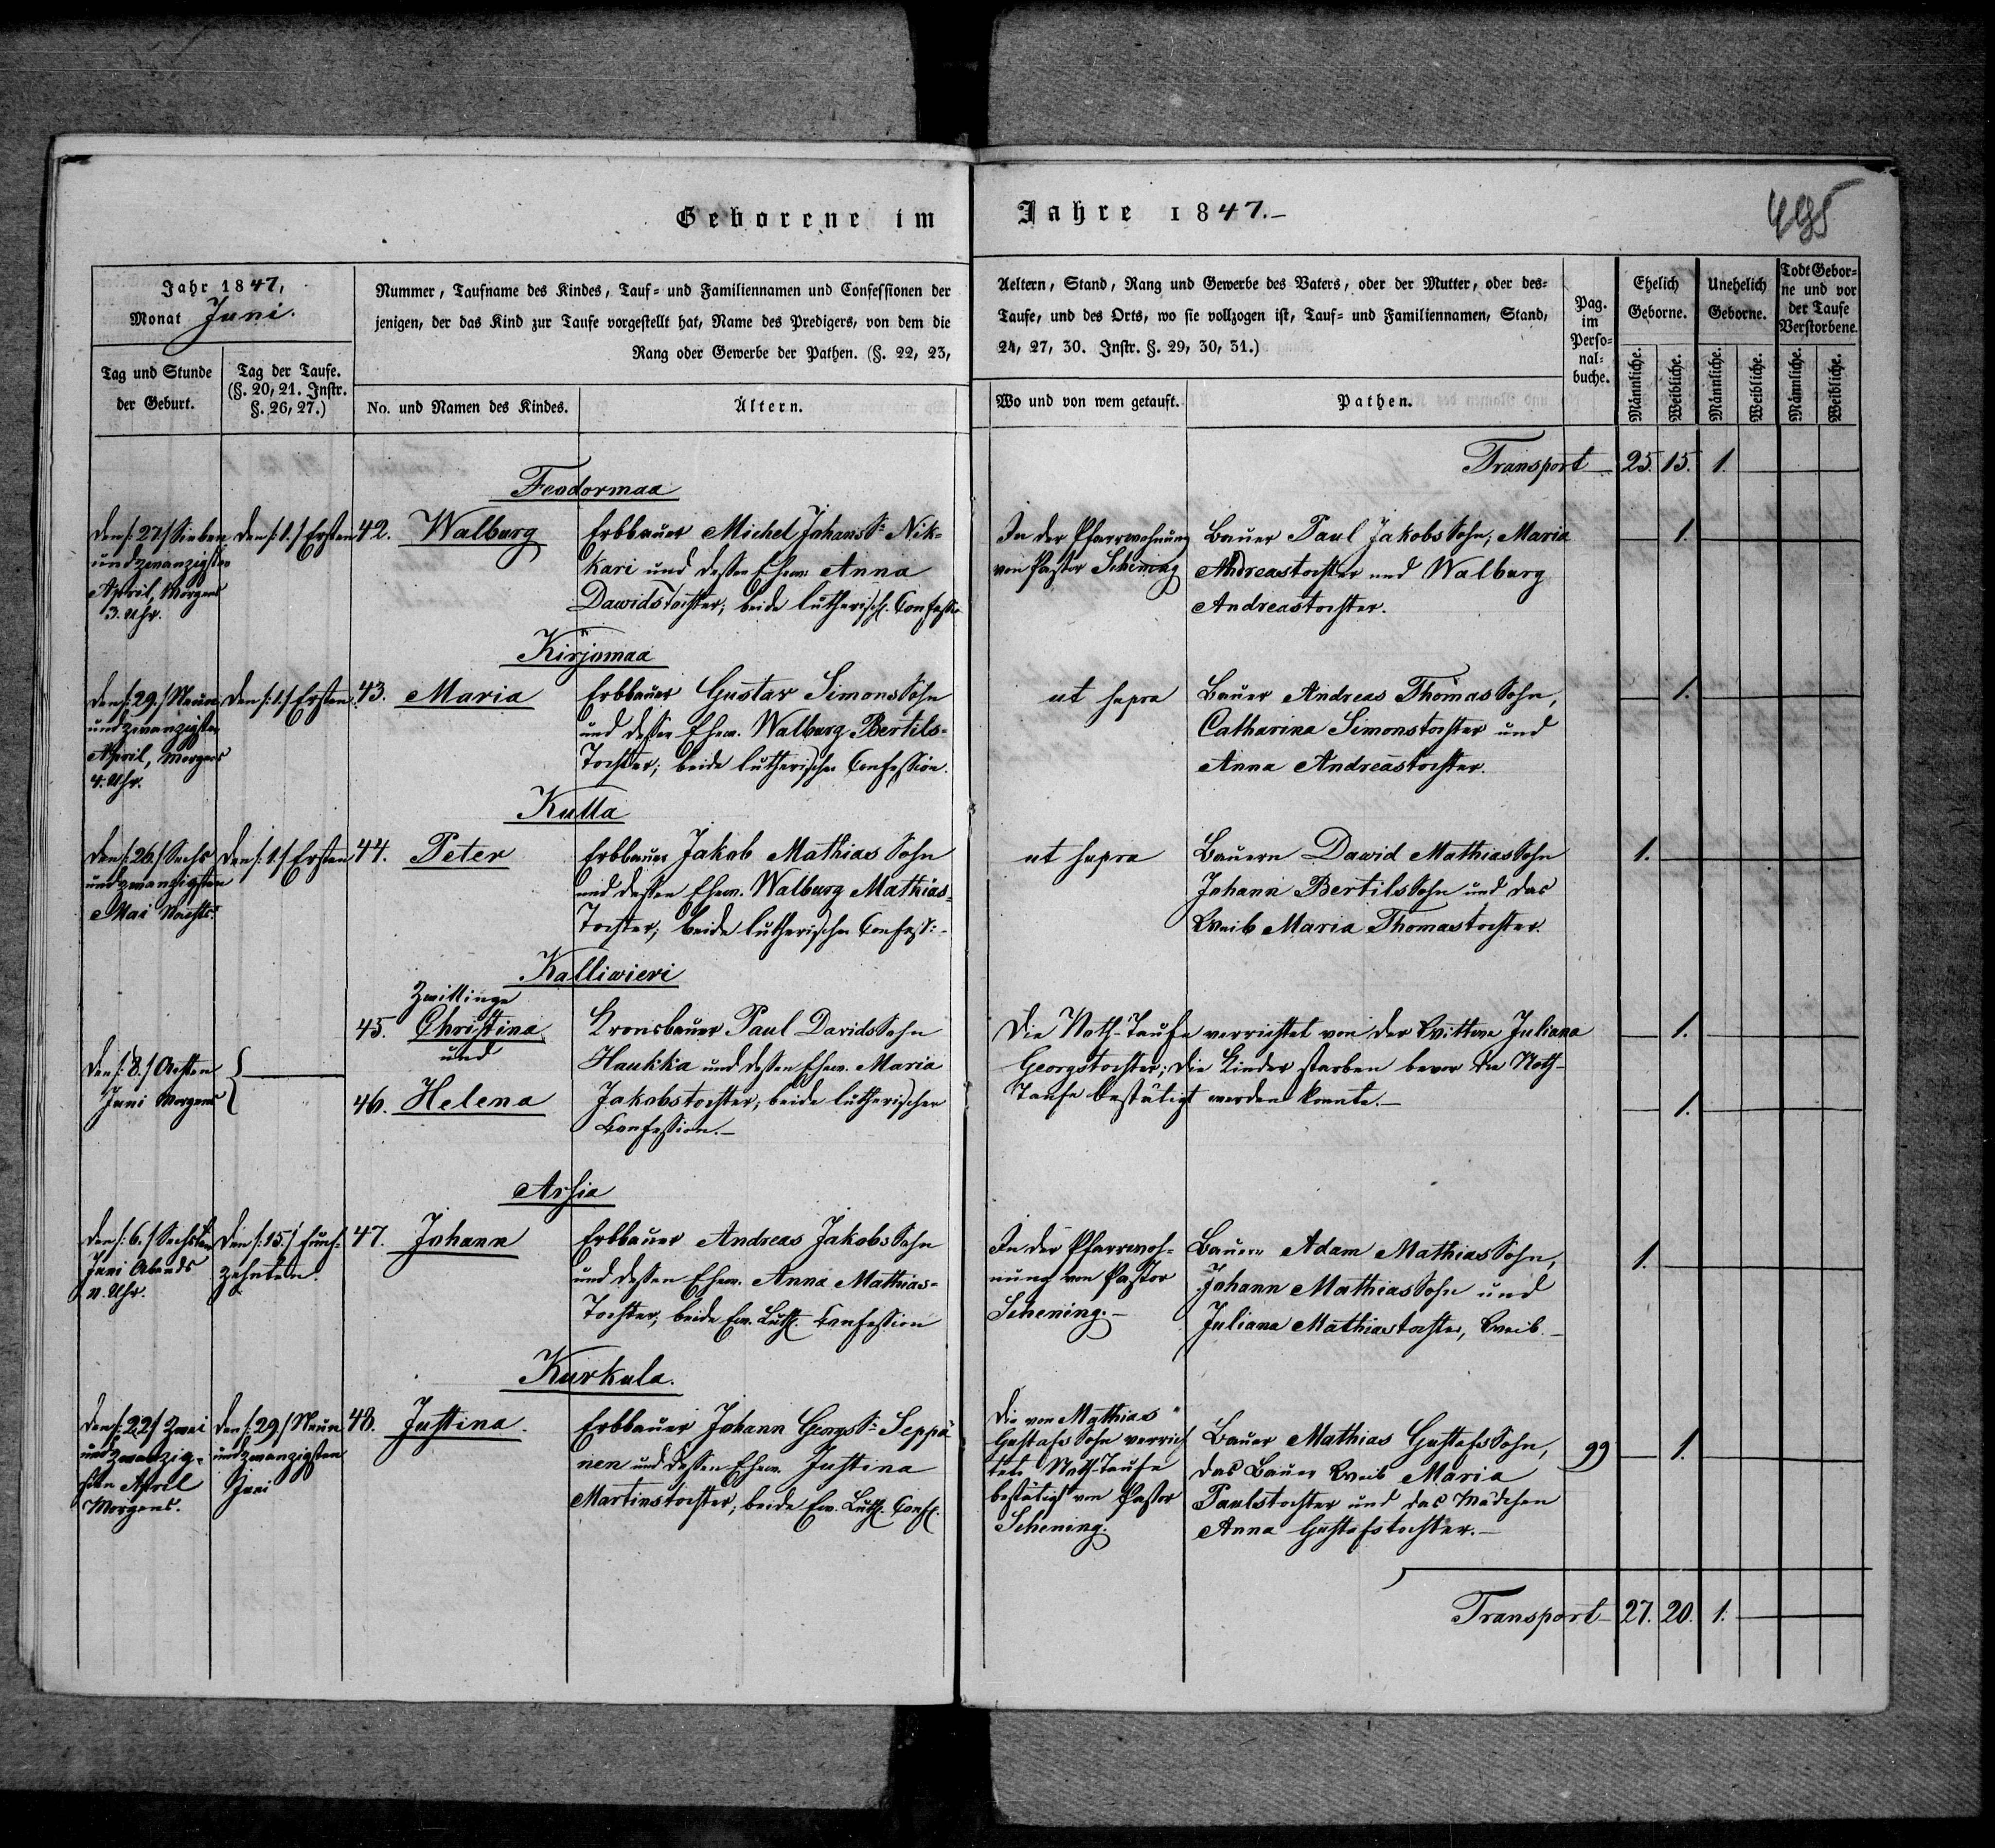 Geborene im Jahre 1847.–
495
Jahr 1847,
Monat Juni.
Tag und Stunde
der Geburt.
Tag der Taufe.
(§. 20, 21. Instr.
§. 26, 27.)
Nummer, Taufname des Kindes, Tauf- und Familiennamen und Confessionen der
jenigen, der das Kind zur Taufe vorgestellt hat, Name des Predigers, von dem die
Rang oder Gewerbe der Pathen. (§. 22, 23,
No. und Namen des Kindes.
Ältern.
Aeltern, Stand, Rang und Gewerbe des Vaters, oder der Mutter, oder des-
Taufe, und des Orts, wo sie vollzogen ist, Tauf- und Familiennamen, Stand,
24, 27, 30. Instr. §. 29, 30, 31.)
Wo und von wem getauft.
Pathen.
Pag.
im
Perso-
nal-
buche.
Ehelich
Geborne.
Unehelich
Geborne.
Todt Gebor-
ne und vor
der Taufe
Verstorbene.
Männliche.
Weibliche.
Männliche.
Weibliche.
Männliche.
Weibliche.
Transport 25. 15. 1.
Feodormaa
den /: 27. / Sieben
und zwanzigsten
April, Morgens
3. Uhr.
den /: 1. / Ersten
42. Walburg
Erbbauer Michel Johanns S. Nik-
kari und dessen Ehew. Anna
Dawidstochter; beide lutherisch. Confessio
In der Pfarrwohnung
von Pastor Schening
Bauer Paul Jakobs Sohn, Maria
Andreastochter und Walburg
Andreastochter.
1.
Kirjamaa
den /: 29. / Neun
und zwanzigsten
April, Morgens
4. Uhr.
den /: 1. / Ersten
43. Maria
Erbbauer Gustav Simons Sohn
und dessen Ehew. Walburg Bertils-
Tochter; beide lutherischer Confession.
ut supra
Bauer Andreas Thomas Sohn,
Catharina Simonstochter und
Anna Andreastochter.
1.
Kulla
den /: 26. / Sechs
und zwanzigsten
Mai Nachts.
den /: 1. / Ersten
44. Peter
Erbbauer Jakob Mathias Sohn
und dessen Ehew. Walburg Mathias-
Tochter; beide lutherischer Confess:
ut supra
Bauern Dawid Mathias Sohn
Johann Bertils Sohn und das
Weib Maria Thomastochter.
1.
Kalliwieri
den /: 8. / Achten
Juni Morgens
Zwillinge
45. Christina
und
46. Helena
Kronsbauer Paul Davids Sohn
Haukka und dessen Ehew. Maria
Jakobstochter; beide lutherischer
Confession.–
Die Noth-Taufe verrichtet von der Wittwe Juliana
Georgstochter; die Kinder starben bevor die Noth-
Taufe bestätigt werden konnte.–
1.
1.
Arsia
den /: 6. / Sechsten
Juni Abends
den /: 15. / Fünf-
zehnten.
47. Johann
Erbbauer Andreas Jakobs Sohn
und dessen Ehew. Anna Mathias-
Tochter, beide Ew. Luth. Confession
In der Pfarrwoh-
nung von Pastor
Schening.–
Bauern Adam Mathias Sohn,
Johann Mathias Sohn und
Juliana Mathiastochter, Weib.–
1.
Kurkula.
den /: 22. / Zwei
und zwanzig-
sten April
Morgens.
den /: 29. / Neun
und zwanzigsten
Juni
48. Justina.
Erbbauer Johann Georgs S. Seppä
nen und dessen Ehew. Justina
Martinstochter; beide Ew. Luth. Conf.
Die von Mathias
Gustafs Sohn verrich
tete Noth-Taufe
bestätigt von Pastor
Schening.
Bauer Mathias Gustafs Sohn,
das Bauer Weib Maria
Paulstochter und das Mädchen
Anna Gustafstochter.–
99
1.
Transport 27. 20. 1.